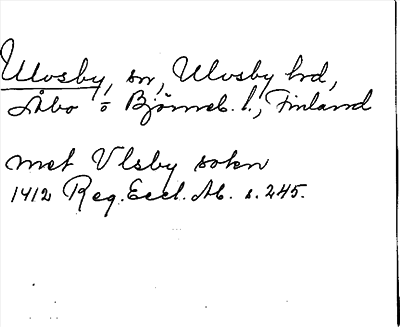 Ulvsby, sn, Ulvsby hd,
Åbo o Björneb. l., Finland
met Vlsby sokn
1412 Reg. Eccl. Ab. s. 245.